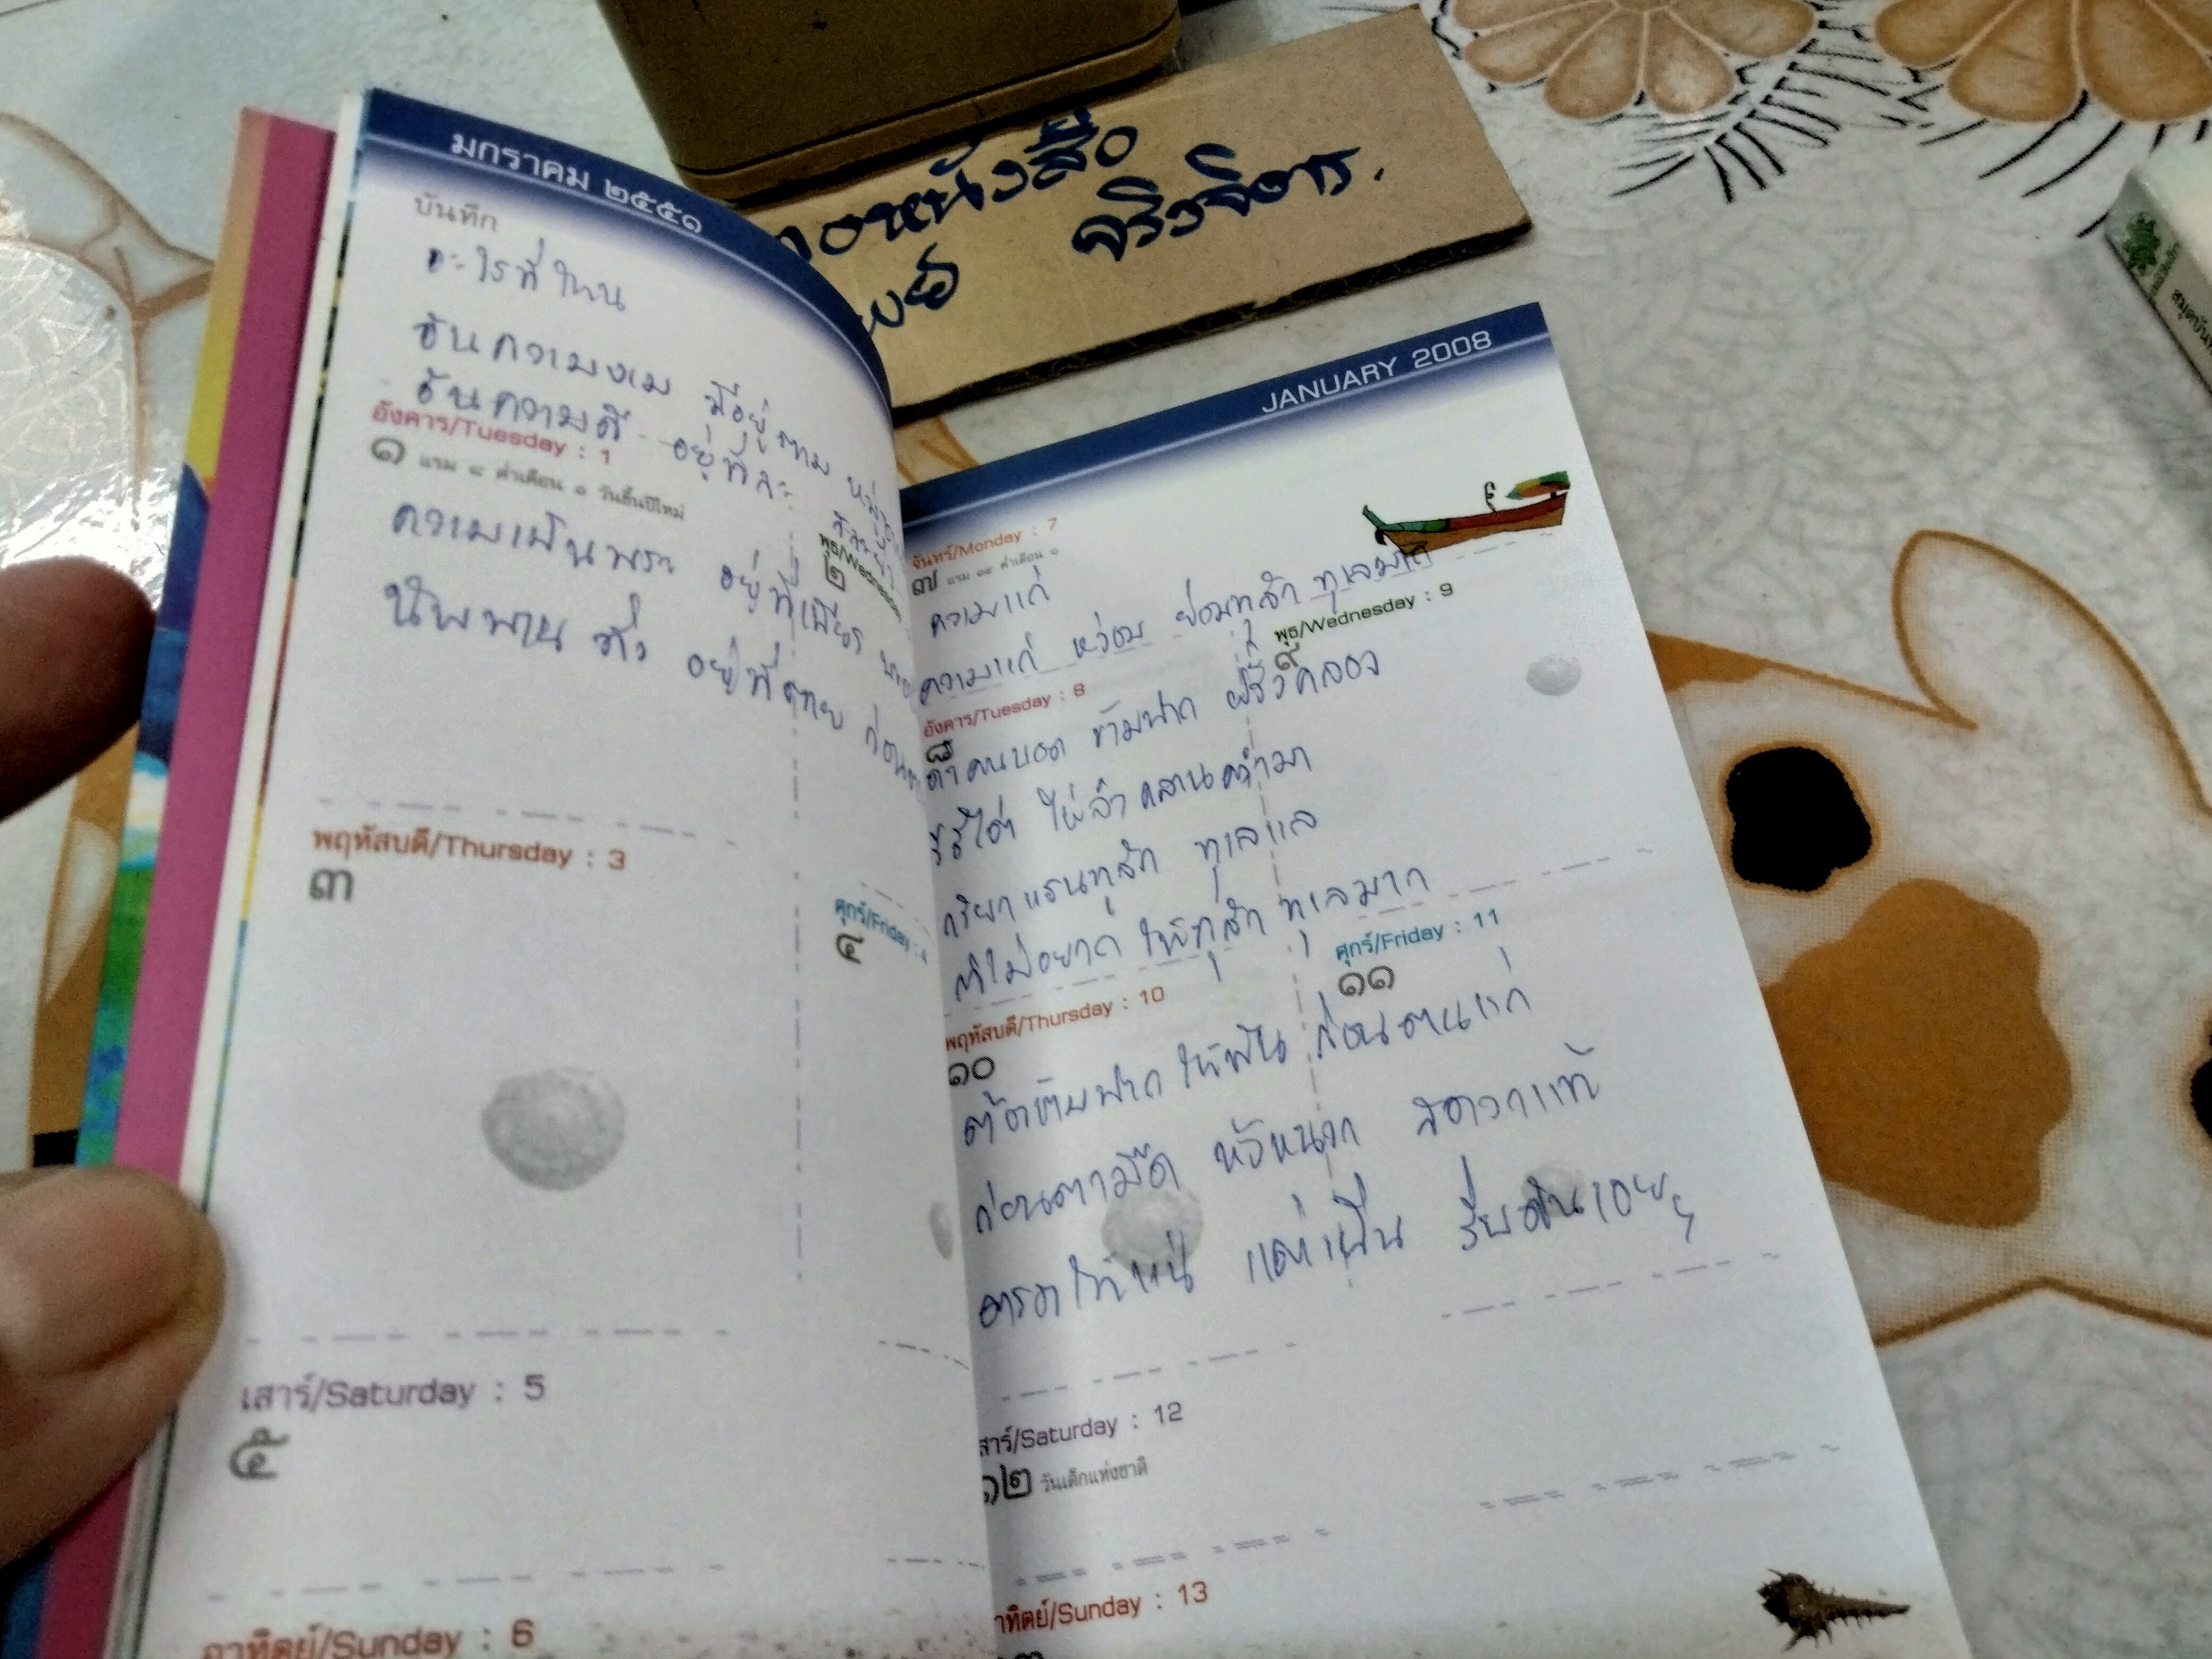 มกราคม ๒๕๕๑
บันทึก
อะไรที่ไหน
อันความงาม มีอยู่ตาม หมู่
อันความดี อยู่ที่ละ
อังคาร/Tuesday : 1
๑ แรม ๘ ค่ำเดือน ๑ วันขึ้นปีใหม่
พุธ/Wednesday
๒
ความเป็นพระ อยู่ที่เพียร
นิพพาน อยู่ที่ตาย ก่อน
พฤหัสบดี/Thursday : 3
๓
ศุกร์/Friday : 4
๔
เสาร์/Saturday : 5
๕
อาทิตย์/Sunday : 6
JANUARY 2008
จันทร์/Monday : 7
๗ แรม ๑๔ ค่ำเดือน ๑
ความแก่
ความแก่ หง่อม ย่อมทุลัก ทุเลมาก
พุธ/Wednesday : 9
๙
อังคาร/Tuesday : 8
๘
คนบอด ข้ามฟาก ฝั่งคลอง
ไผ่ลำ คลานคลำมา
กิริยา แสนทุลัก ทุเลแล
ถ้าไม่อยาก ให้ทุลัก ทุเลมาก
พฤหัสบดี/Thursday : 10
๑๐
ศุกร์/Friday : 11
๑๑
ข้ามฟาก ให้พ้น ก่อนตนแก่
ก่อนตามืด หูหนวก สะดวกแท้
ตรองให้แน่ แต่เนิ่น
เสาร์/Saturday : 12
๑๒ วันเด็กแห่งชาติ
อาทิตย์/Sunday : 13
๑๓
หนังสือ
สมุดบันทึก